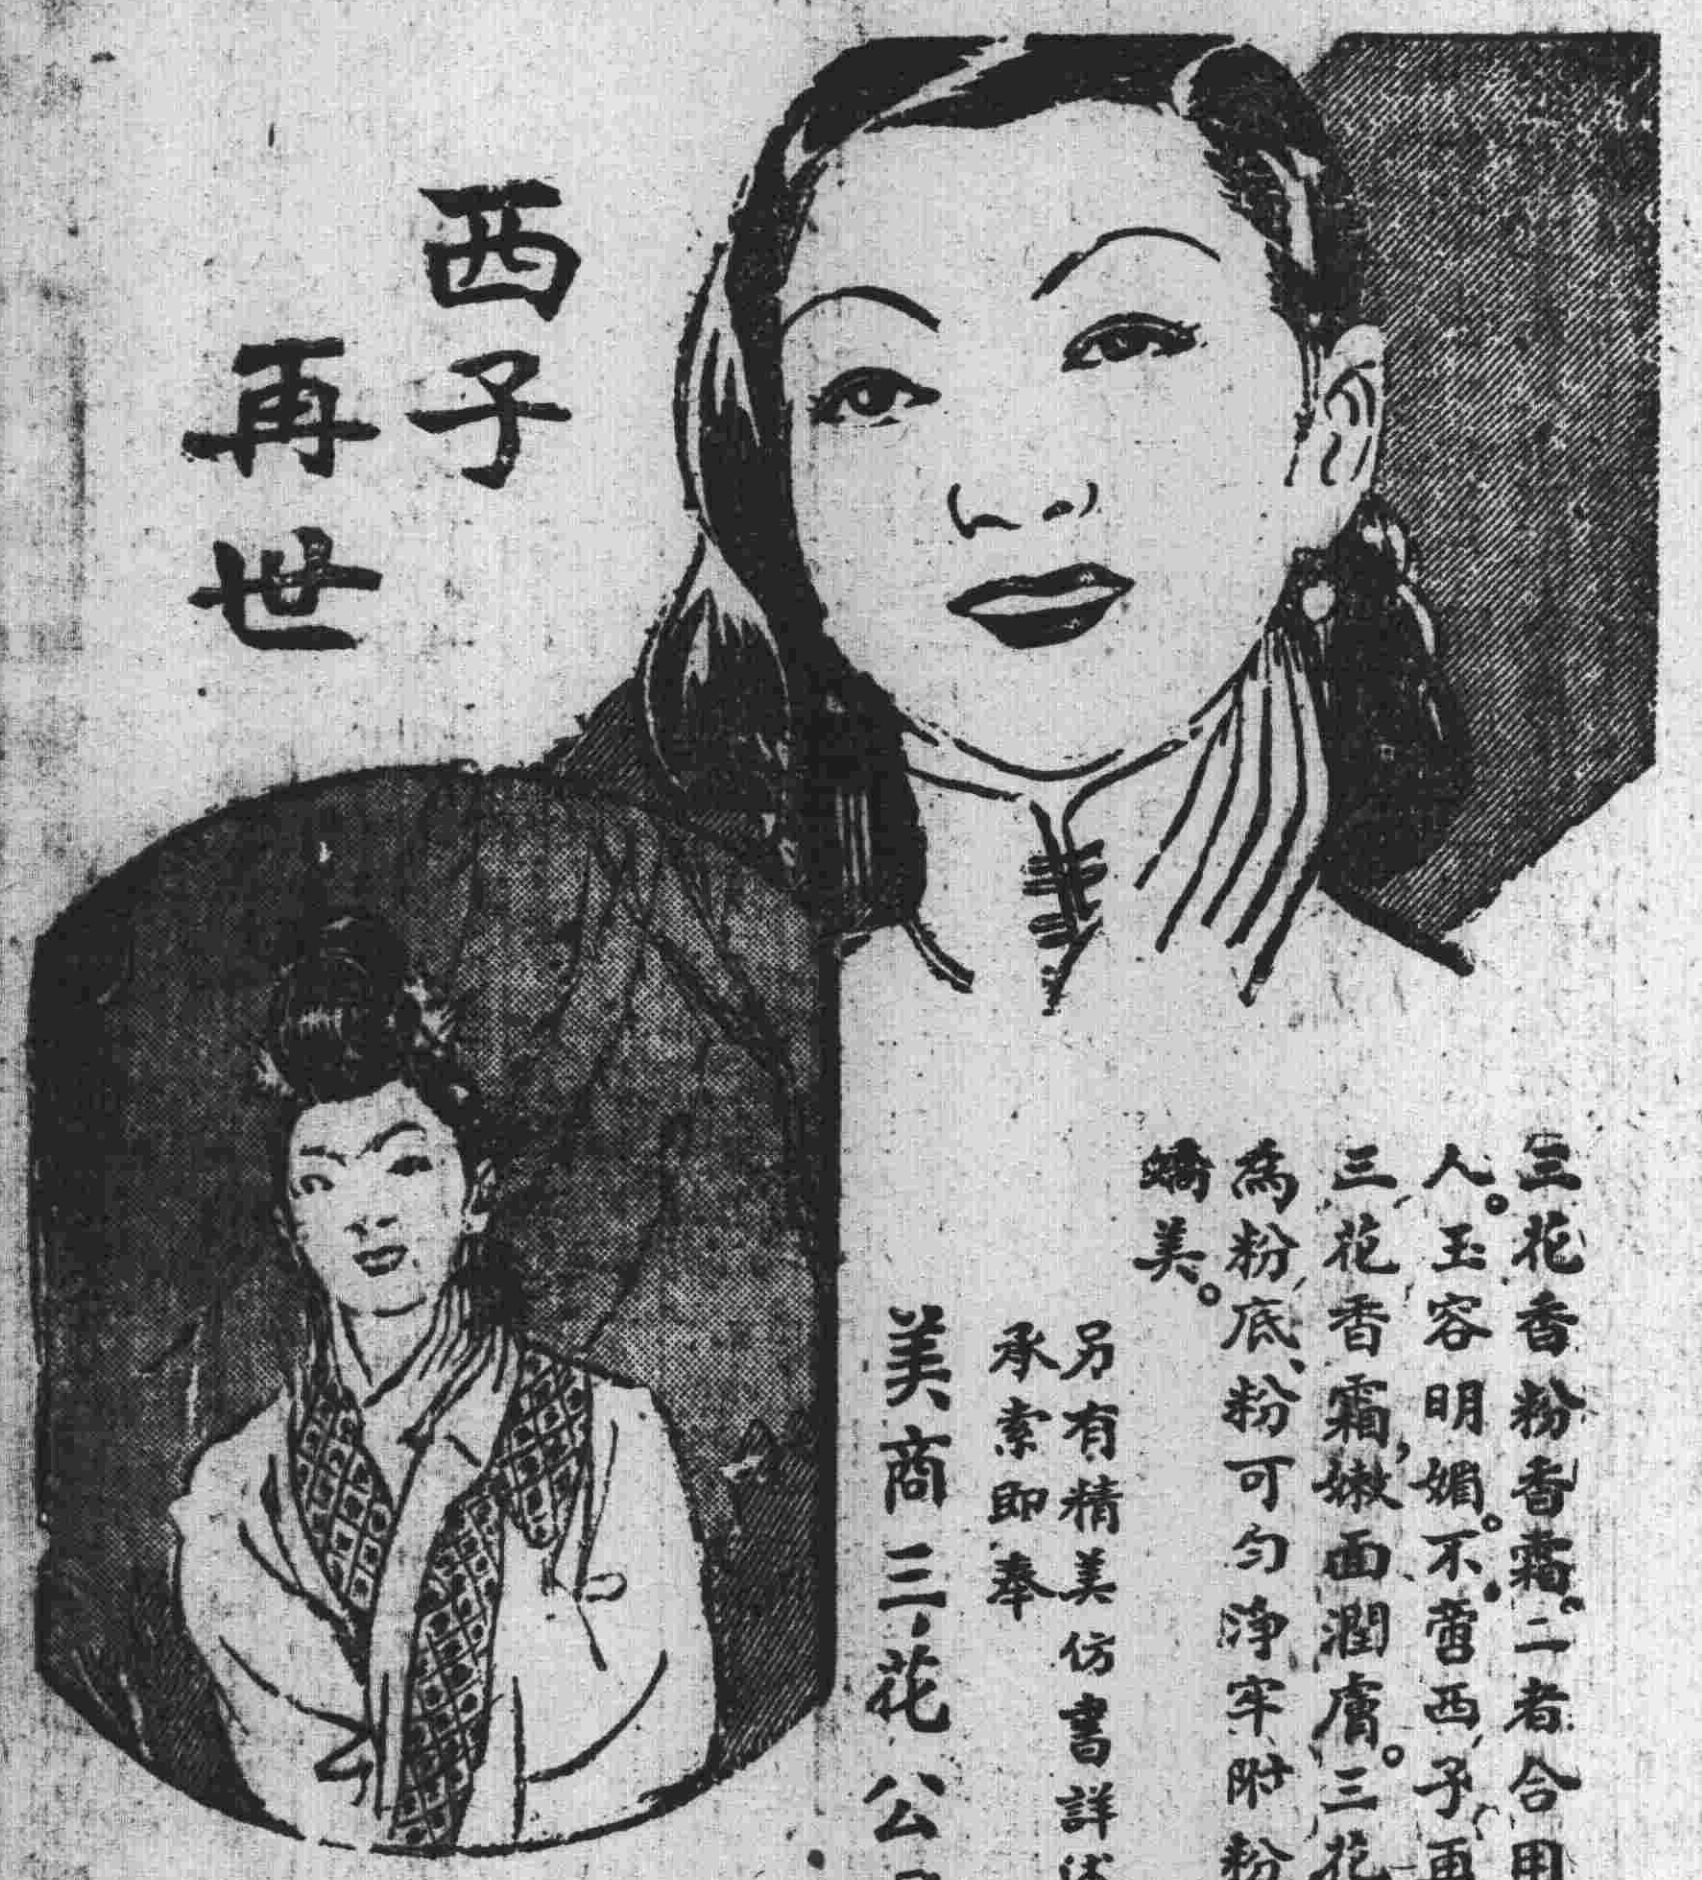 西子
再世
三花香粉香霜。二者合用
人。玉容明媚。不啻西子再
三花香霜，嫩面潤膚。三花
為粉底、粉可勻淨牢附粉
嬌美。
另有精美仿書詳述
承索即奉
美商三花公